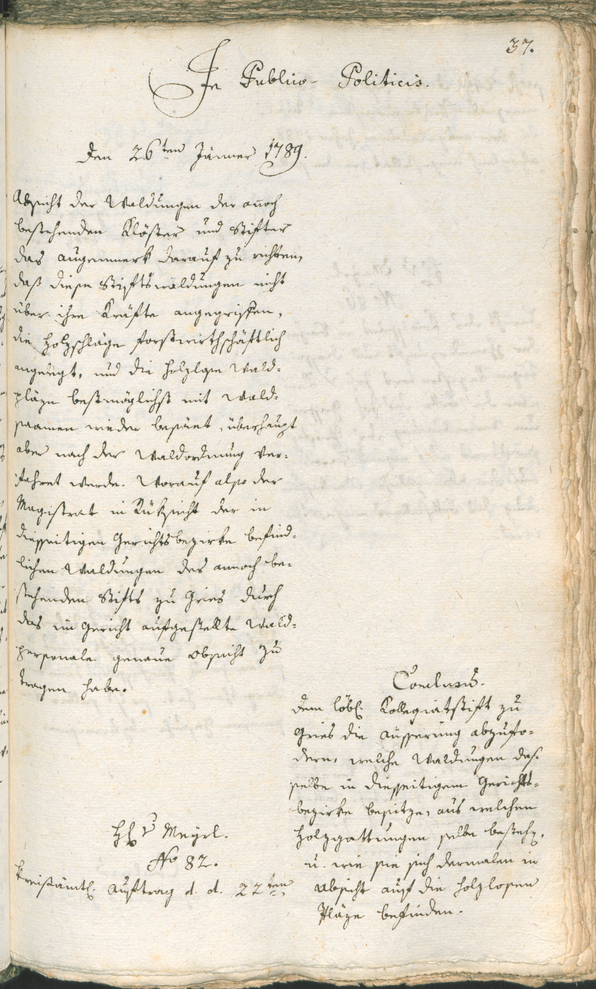 37.
In Publico-Politicis.
Den 26ten Jänner 1789.
Absicht der Waldungen der annoch
bestehenden Klöster und Stifter
das augenmerk darauf zu richten,
daß diese Stiftswaldungen nicht
über ihre Kräfte angegriffen,
die Holzschläge forstwirthschäftlich
angelegt, und die holzlosen Wald-
pläze bestmöglichst mit Wald-
saamen wieder besäet, überhaupt
aber nach der Waldordnung ver-
fahret werde. Worauf also der
Magistrat in Rüksicht der in
diesseitigen Gerichtsbezirke befind-
lichen Waldungen des annoch be-
stehenden Stifts zu Gries durch
das im Gericht aufgestellte Wald-
personale genaue obsicht zu
tragen habe.
Conclusum.
Dem löbl. Kollegiatstift zu
Gries die äusserung abzufo-
dern, welche Waldungen das-
selbe in diesseitigem Gerichts-
bezirke besitze, aus welchen
Holzgattungen selbe bestehe,
u. wie sie sich dermalen in
absicht auf die holzlosen
Pläze befinden.
H. v Meyrl.
No 82.
Kreisämtl. Auftrag d. d. 22ten